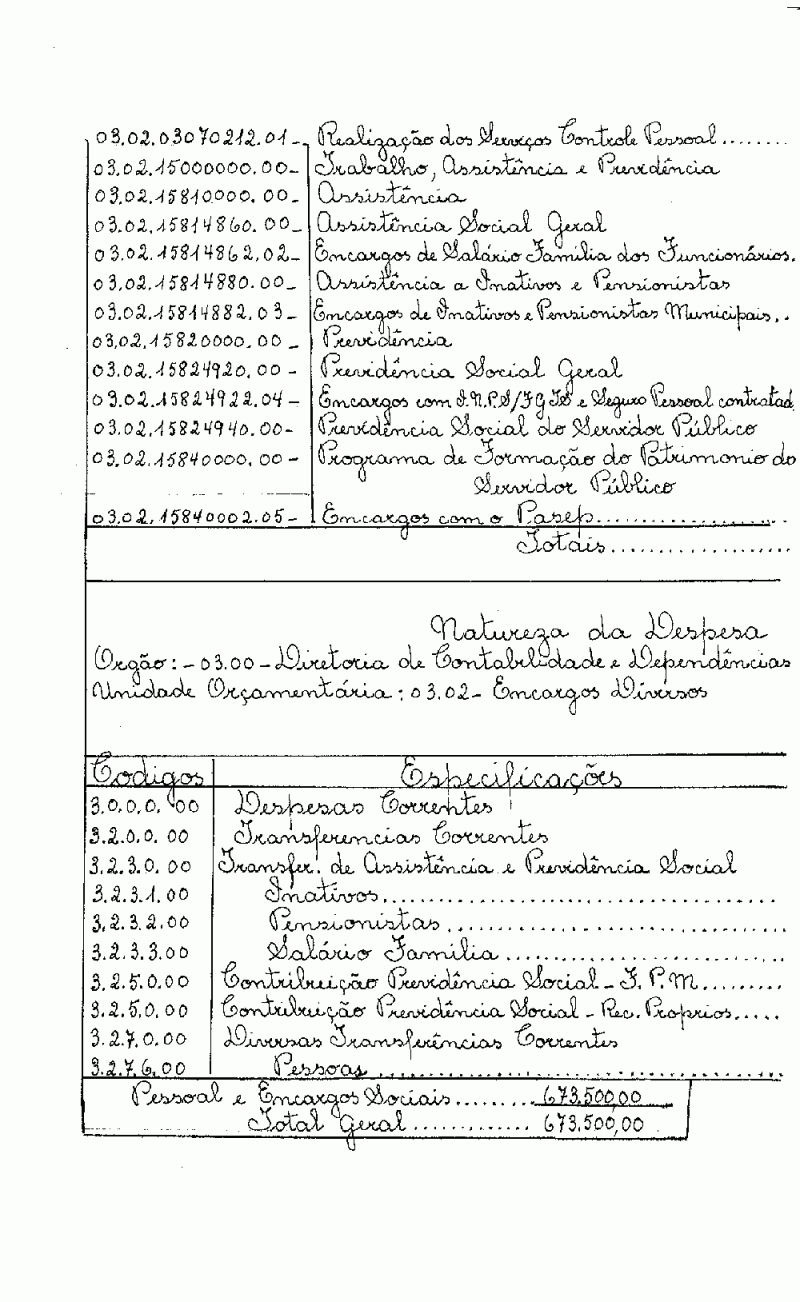 03.02.03070212.01- Realização dos Serviços Controle Pessoal........
03.02.15000000.00- Trabalho, Assistência e Previdência
03.02.15810000.00- Assistência
03.02.15814860.00- Assistência Social Geral
03.02.15814862.02- Encargos de Salário Família dos Funcionários.
03.02.15814880.00- Assistência a Inativos e Pensionistas
03.02.15814882.03- Encargos de Inativos e Pensionistas Municipais..
03.02.15820000.00- Previdência
03.02.15824920.00- Previdência Social Geral
03.02.15824922.04- Encargos com I.N.P.S/FGTS e Seguro Pessoal contratad
03.02.15824940.00- Previdência Social do Servidor Público
03.02.15840000.00- Programa de Formação do Patrimonio do
Servidor Público
03.02.15840002.05- Encargos com o Pasep....................
Totais....................
Natureza da Despesa
Orgão:-03.00-Diretoria de Contabilidade e Dependências
Unidade Orçamentária: 03.02- Encargos Diversos
Codigos Especificações
3.0.0.0.00 Despesas Correntes
3.2.0.0.00 Transferencias Correntes
3.2.3.0.00 Transfer. de Assistência e Previdência Social
3.2.3.1.00 Inativos........................................
3.2.3.2.00 Pensionistas..................................
3.2.3.3.00 Salário Família............................
3.2.5.0.00 Contribuição Previdência Social - F.P.M.........
3.2.5.0.00 Contribuição Previdência Social - Rec. Proprios.....
3.2.7.0.00 Diversas Transferências Correntes
3.2.7.6.00 Pessoas........................................
Pessoal e Encargos Sociais......... 673.500,00
Total Geral............. 673.500,00